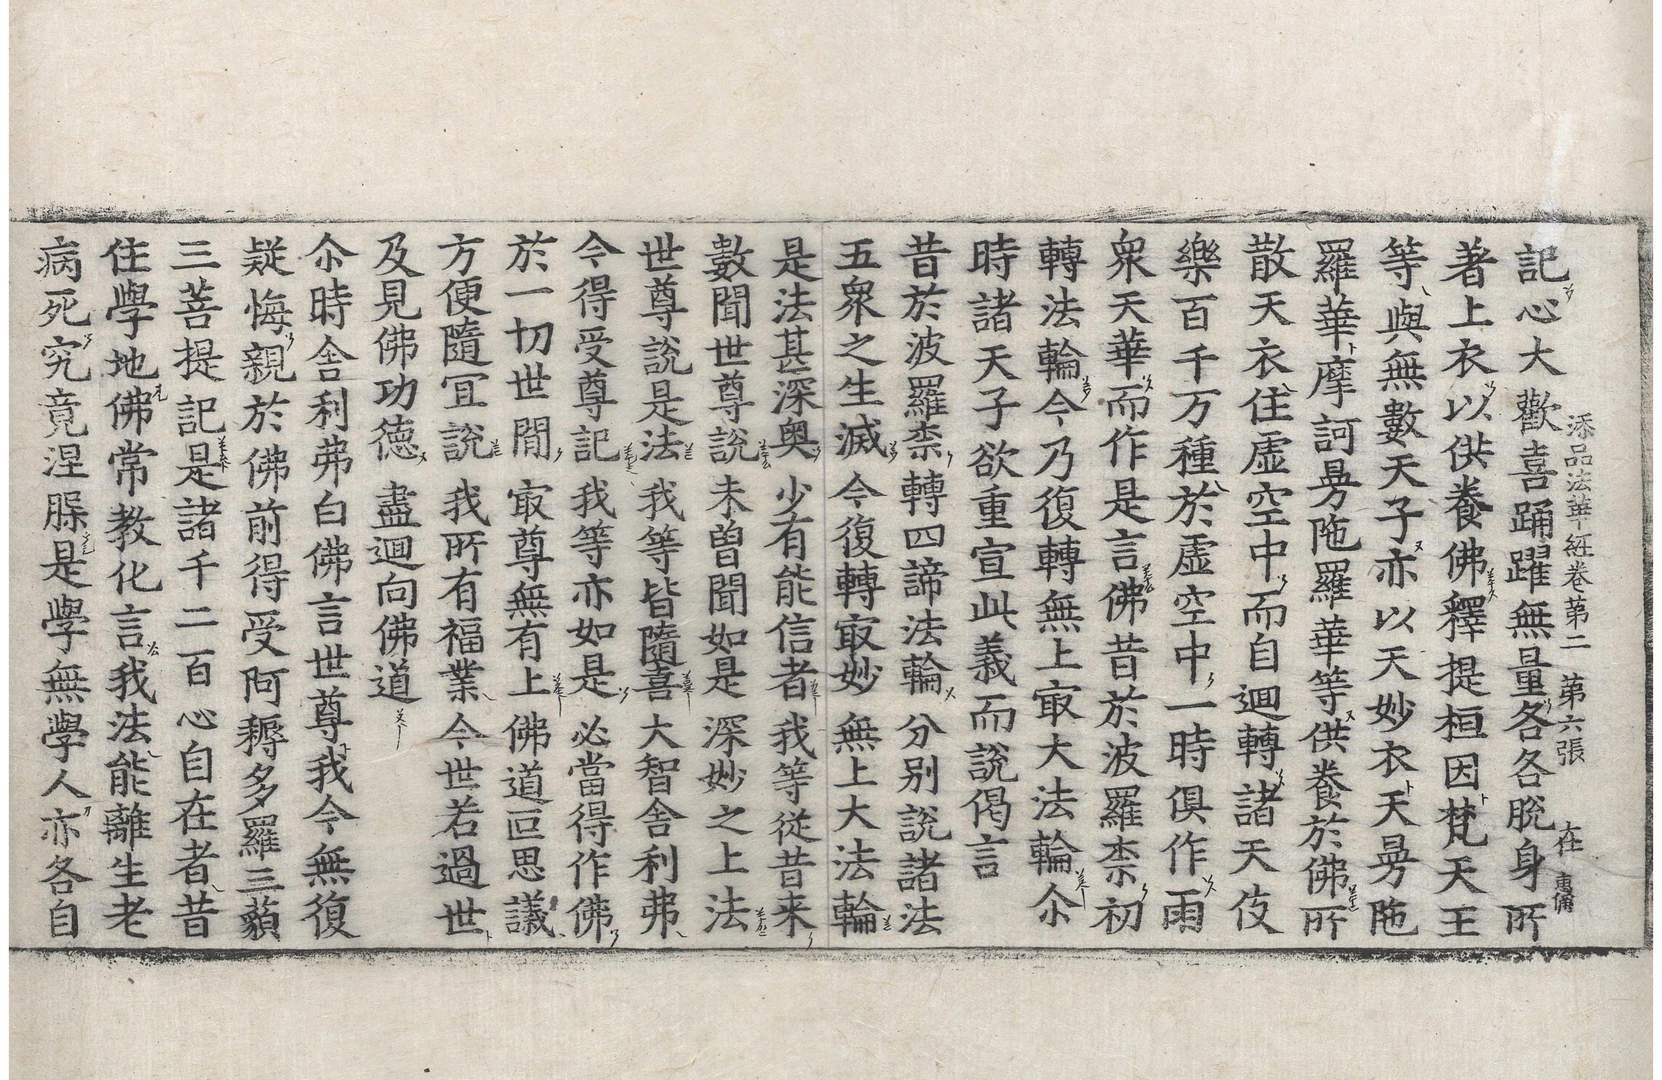 添品法華経卷第二 第六張 在
記心大歡喜踊躍無量各各脫身所
著上衣以供養佛釋提桓因梵天王
等與無數天子亦以天妙衣天曼陁
羅華摩訶曼陁羅華等供養於佛所
散天衣住虛空中而自迴轉諸天伎
樂百千万種於虛空中一時俱作雨
衆天華而作是言佛昔於波羅柰初
轉法輪今乃復轉無上㝡大法輪尒
時諸天子欲重宣此義而說偈言
昔於波羅柰 轉四諦法輪 分別說諸法
五衆之生滅 今復轉㝡妙 無上大法輪
是法甚深奥 少有能信者 我等從昔来
數聞世尊說 未曽聞如是 深妙之上法
世尊說是法 我等皆隨喜 大智舍利弗
今得受尊記 我等亦如是 必當得作佛
於一切世間 㝡尊無有上 佛道叵思議
方便隨冝說 我所有福業 今世若過世
及見佛功德 盡迴向佛道
尒時舍利弗白佛言世尊我今無復
疑悔親於佛前得受阿耨多羅三藐
三菩提記是諸千二百心自在者昔
住學地佛常教化言我法能離生老
病死究竟涅槃是學無學人亦各自